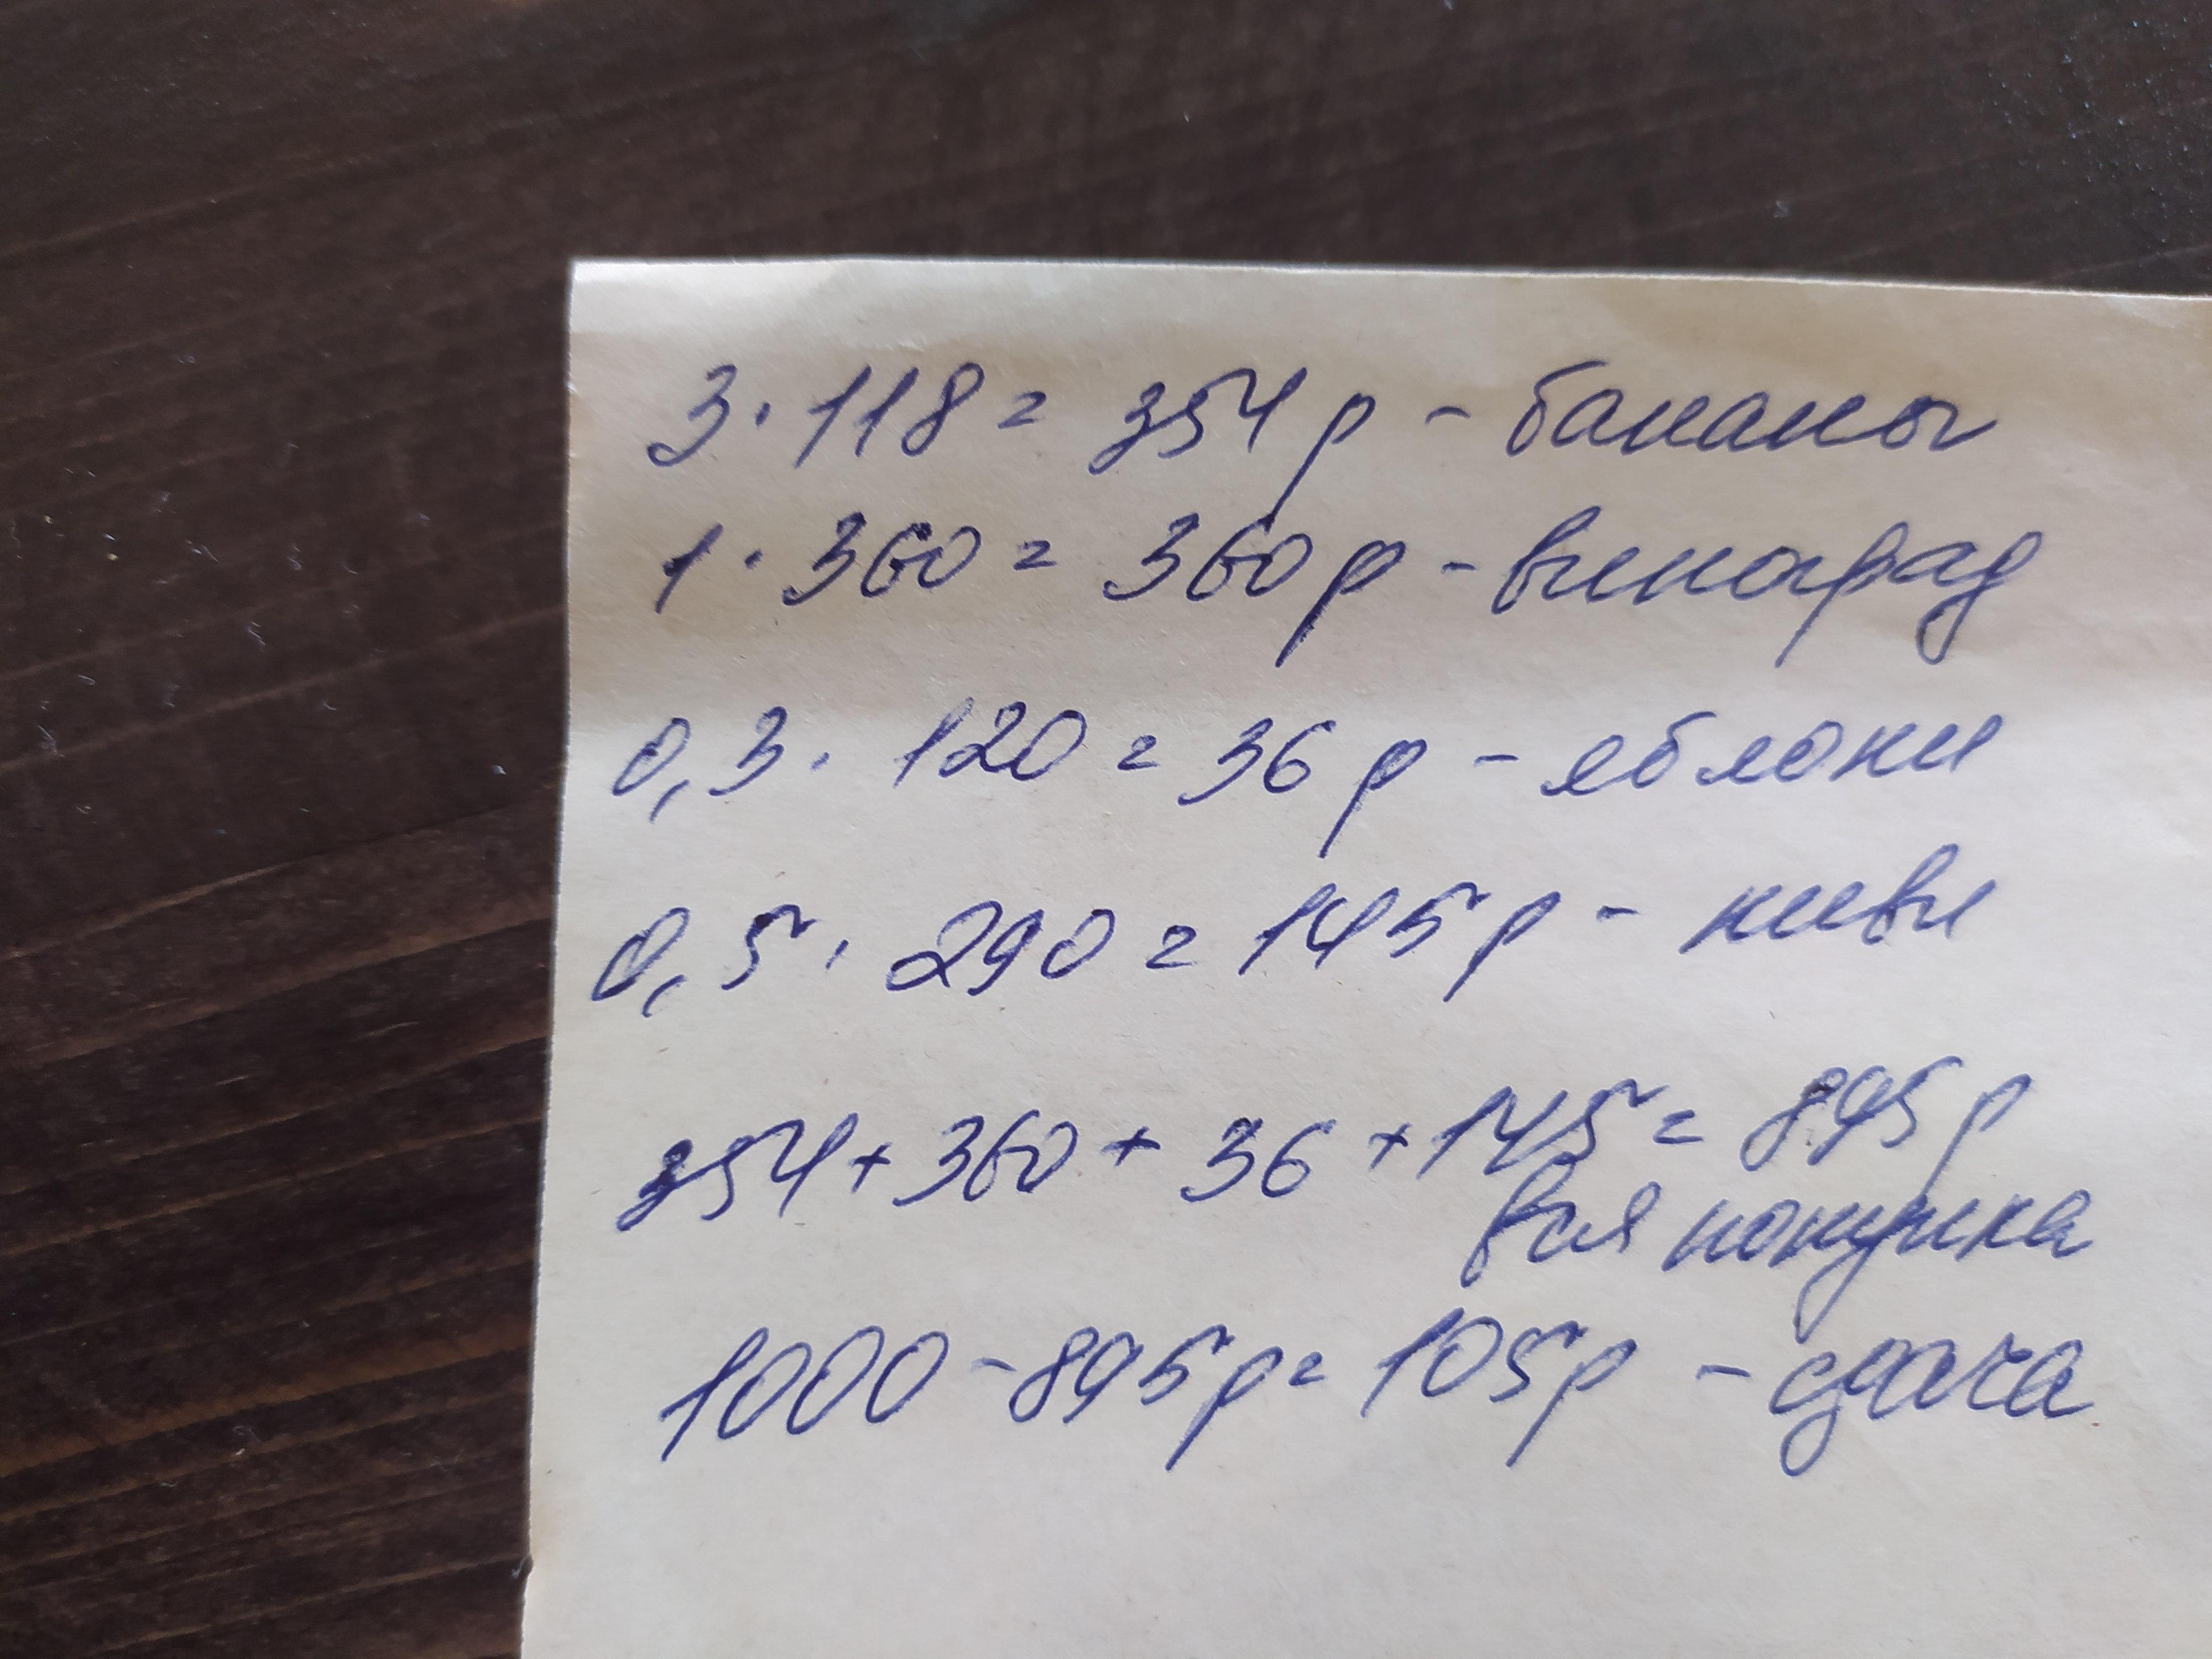 3 · 118 = 354 р - бананы
1 · 360 = 360 р - виноград
0,3 · 120 = 36 р - яблоки
0,5 · 290 = 145 р - киви
354 + 360 + 36 + 145 = 895 р
вся покупка
1000 - 895 р = 105 р - сдача